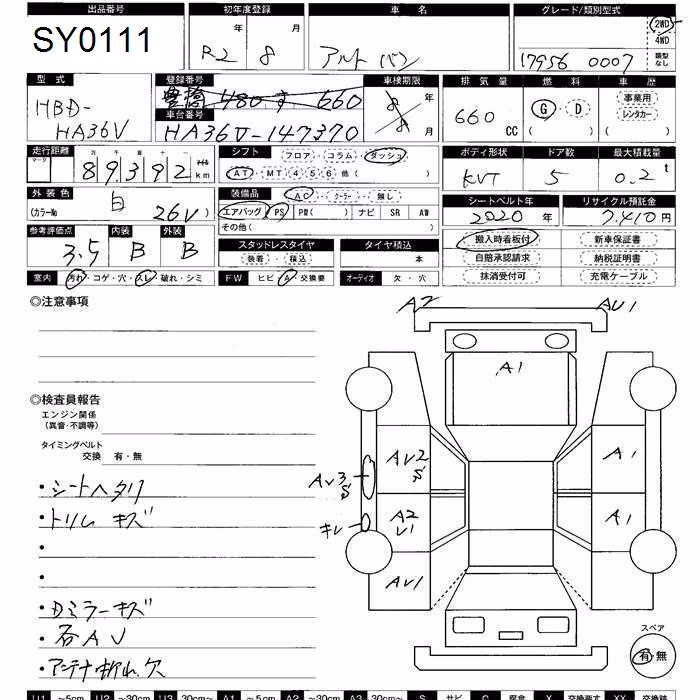 出品番号 初年度登録 車名 グレード/類別型式
SY0111 R2 8 アルト バン 17956 0007 2WD 4WD 類型なし
型式 登録番号 車検期限 排気量 燃料 車歴
HBD-HA36V 豊橋 480 す 660 年 月 660 CC G・D ( ) 事業用 レンタカー ( )
車台番号
HA36V-147370
走行距離 シフト フロア・コラム・ダッシュ ボディ形状 ドア数 最大積載量
マーク 十万 万 千 百 十 一
89392 マイル km AT・MT 4・5・6 他( ) KVT 5 0.2 t
外装色 装備品 AC・クーラー・無し シートベルト年 リサイクル預託金
白 (カラーNo 26V) エアバッグ PS PW( ) ナビ SR AW 2020 年 7,410 円
その他( )
参考評価点 内装 外装 搬入時看板付 新車保証書
3.5 B B スタッドレスタイヤ タイヤ積込 自賠承認請求 納税証明書
装着・積込 本 抹消受付可 充電ケーブル
室内 汚れ・コゲ・穴・スレ・破れ・シミ FW ヒビ・A・交換要 オーディオ 欠・穴
◎注意事項
A2 AU1
A1
◎検査員報告
エンジン関係
(異音・不調等)
タイミングベルト
交換 有・無
AV2 S A1
AV3 S
・シートヘタリ
・トリム キズ
キレ A2 V1 A1
・
・
AV1
・Dミラーキズ
・右AV
・アンテナ折れ、欠
スペア
有・無
U1 ~5cm U2 ~30cm U3 30cm~ A1 ~5cm A2 ~30cm A3 30cm~ S サビ C 腐食 X 交換要す XX 交換跡